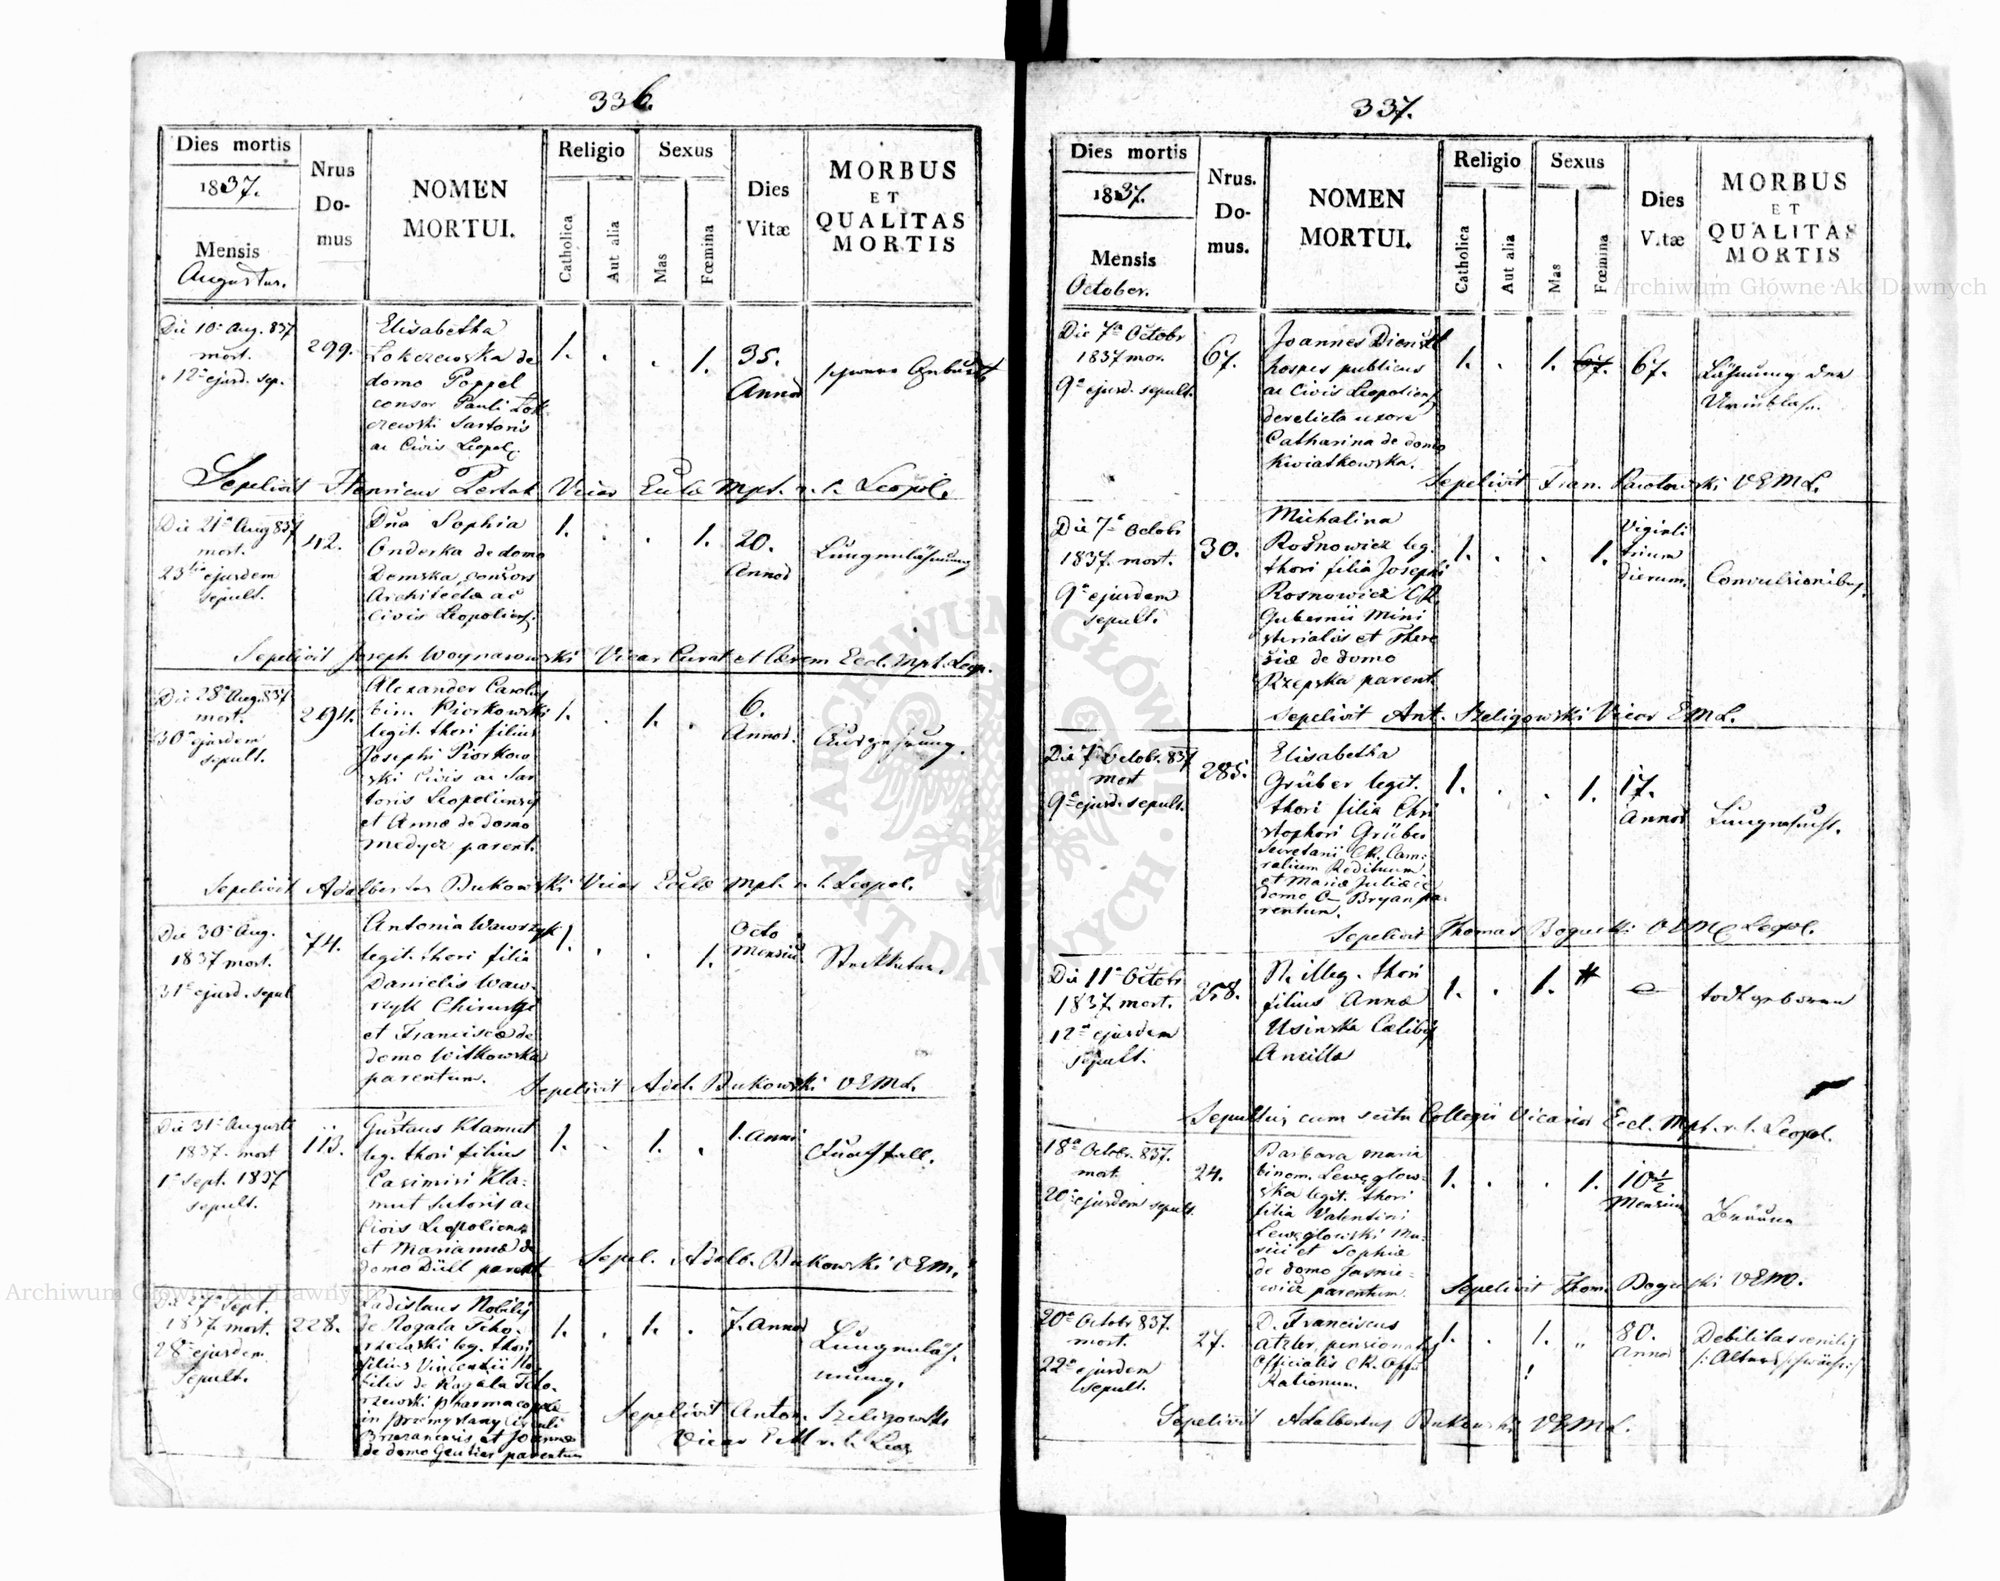 336.
Dies mortis
1837.
Mensis
Augustus.
Nrus
Do-
mus
NOMEN
MORTUI.
Religio
Catholica
Aut alia
Sexus
Mas
Fœmina
Dies
Vitæ
MORBUS
ET
QUALITAS
MORTIS
Die 10a Aug. 837
mort.
12a ejusd. sep.
299.
Elisabetha
Lokczewska de
domo Poppel
consor Pauli Lok
czewski Sartoris
ac Civis Leopol.
1. . . 1.
35.
Annor
schwere Geburt
Sepelivit Henricus Vicar Mpt. r. l. Leopol.
Die 21a Aug 837
mort.
23tia ejusdem
sepult.
42.
Dna Sophia
Onderka de domo
Demska, consors
Architecta ac
Civis Leopoliens.
1. . . 1.
20.
Annor
Lungenlähmung
Sepelivit Joseph Wognarowski Vicar Curat et Eccl. Mpt. Leop.
Die 28a Aug. 837
mort.
30a ejusdem
sepult.
294.
Alexander Carolus
bin. Piorkowski
legit. thori filius
Josephi Piorkow
ski Civis ac Sar
toris Leopoliensis
et Annæ de domo
Medycz parent.
1. . 1. .
6.
Annor.
Auszehrung.
Sepelivit Adalbertus Bukowski Vicar Eccle Mpt. r. l. Leopol.
Die 30a Aug.
1837 mort.
31a ejusd. sepul
74.
Antonia Wawrzyk
legit. thori filia
Danielis Waw-
rzyk Chirurgi
et Franciscæ de
domo Witkowska
parentum.
1. . . 1.
Octo
Mensiu
Stickhusten.
Sepelivit Ad. Bukowski VEML.
Die 31a Augusti
1837. mort
1a Sept. 1837
sepult.
113.
Gustaus Klamut
leg. thori filius
Casimiri Kla-
mut Sutoris ac
Civis Leopoliens
et Mariannæ de
domo Düll parent.
1. . 1. .
1. Anni
Durchfall.
Sepel. Adalb. Bukowski VEM.
Die 27a Sept.
1837. mort.
28a ejusdem
sepult.
228.
Ladislaus Nobilis
de Rogala Tcho-
rzewski leg. thori
filius Vincentii No
bilis de Rogala Tcho-
rzewski pharmacopolæ
in Przemyslany Circuli
Brzezanensis et Joannæ
de domo Gentier parentum
1. . 1. .
7. Annor
Lungenläh-
mung.
Sepelivit Anton. Szeligowski
Vicar EM r. l. Leop
337.
Dies mortis
1837.
Mensis
October.
Nrus.
Do-
mus.
NOMEN
MORTUI.
Religio
Catholica
Aut alia
Sexus
Mas
Fœmina
Dies
Vitæ
MORBUS
ET
QUALITAS
MORTIS
Die 7a Octobr
1837 mor.
9a ejusd. sepult.
67.
Joannes Dienstl
hospes publicus
ac Civis Leopoliens
derelicta uxore
Catharina de domo
Kwiatkowska.
1. . 1. 67. 67.
Lähmung der
Urinblase.
Sepelivit Fran. Pawlowski VEML.
Die 7a Octobr
1837. mort.
9a ejusdem
sepult.
30.
Michalina
Rosnowicz leg.
thori filia Josephi
Rosnowicz CR.
Gubernii Mini
sterialis et There
siæ de domo
Rzepska parent.
1. . . 1.
Viginti
trium
dierum.
Convulsionibus.
Sepelivit Ant. Szeligowski Vicar EML.
Die 7a Octobr. 837
mort
9a ejusd. sepult.
285.
Elisabetha
Grüber legit.
thori filia Chri
stophori Grüber
Secretarii CR. Cam-
ralium Redituum
et Mariæ Juliæ de
domo O Bryan pa-
rentum.
1. . . 1.
17.
Annor
Lungensucht.
Sepelivit Thomas Bogucki VEML Leopol.
Die 11a Octobr
1837. mort.
12a ejusdem
sepult.
258.
N. illeg. thori
filius Annæ
Usinska Cælibis
Ancilla
1. . 1.
todtgeboren
Sepultus cum scitu Collegii Vicarior Eccl. Mpt. r. l. Leopol.
18a Octobr. 837.
mort
20a ejusdem sepult.
24.
Barbara Maria
binom. Lewęglow-
ska legit. thori
filia Valentini
Lewęglowski Mu-
sici et Sophiæ
de domo Jasnie-
wicz parentum.
1. . . 1.
10½
Mensium
Bräune
Sepelivit Thom. Bogucki VEM.
20a Octobr 837.
mort.
22a ejusdem
sepult.
27.
D. Franciscus
Atzler, pensionatus
Officialis CR. Offi
Rationum.
1. . 1. „
80.
Annor
Debilitas senilis
/: Altersschwäche :/
Sepelivit Adalbertus Bukowski VEML.
Archiwum Główne Akt Dawnych
Archiwum Główne Akt Dawnych
ARCHIWUM GŁÓWNE AKT DAWNYCH